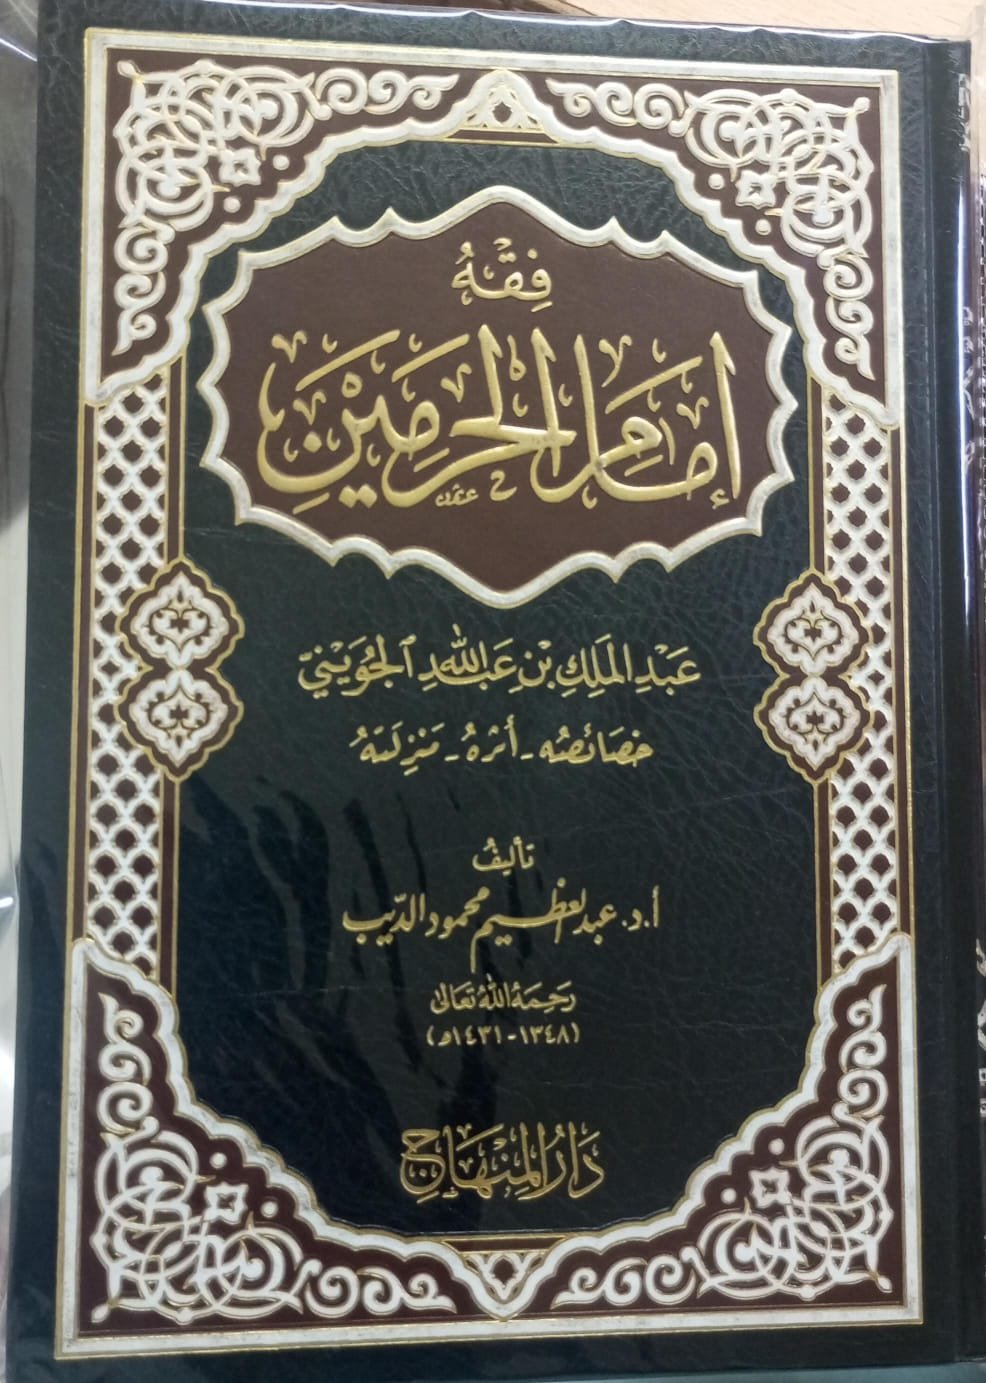 فِقْهُ
إِمَامِ الْحَرَمَيْنِ
عَبْدِ الْمَلِكِ بْنِ عَبْدِ اللهِ الْجُوَيْنِيّ
خَصَائِصُهُ - أَثَرُهُ - مَنْزِلَتُهُ
تأليفُ
أ.د. عبد العظيم محمود الدّيب
رَحِمَهُ اللهُ تَعَالَى
(١٣٤٨-١٤٣١هـ)
دَارُ الْمِنْهَاجِ